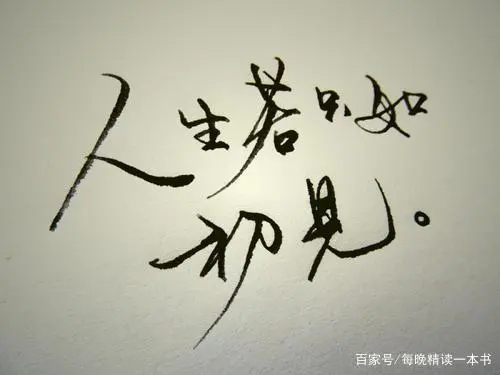 人生若只如
初见。
百家号/每晚精读一本书